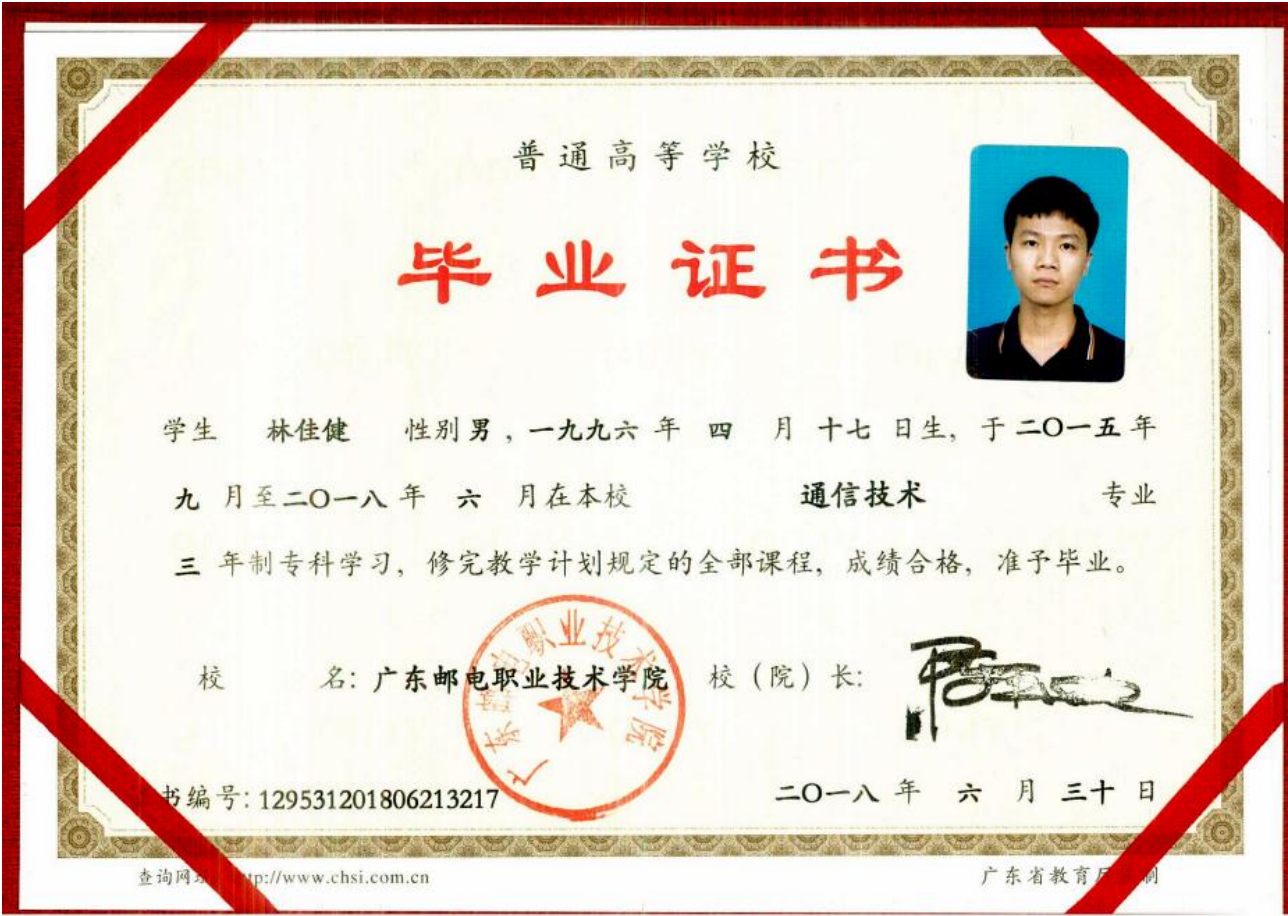 普通高等学校
毕业证书
学生 林佳健 性别 男，一九九六 年 四 月 十七 日生，于 二〇一五 年
九 月至 二〇一八 年 六 月在本校 通信技术 专业
三 年制专科学习，修完教学计划规定的全部课程，成绩合格，准予毕业。
校 名：广东邮电职业技术学院 校（院）长：
广东邮电职业技术学院
书编号：129531201806213217 二〇一八 年 六 月 三十 日
查询网 tp://www.chsi.com.cn 广东省教育 制